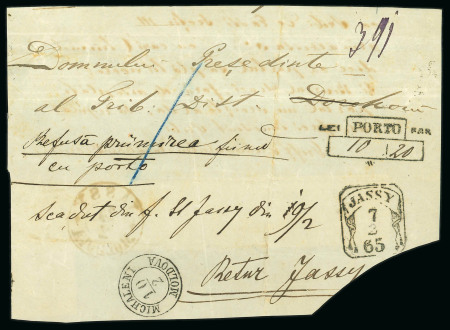 391
Domnului Președinte
al Trib. Dist Dorohoiu
Refuză primirea fiind
cu porto
LEI PORTO PAR
10 20
scadut din f. St Jassy din 19/2
JASSY
7
2
65
MICHALENI MOLDOVA
10
2
Retur Jassy